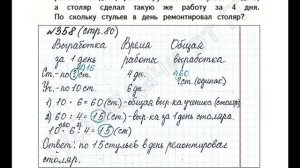 а столяр сделал такую же работу за 4 дня.
По скольку стульев в день ремонтировал столяр?
№358 (стр. 80)
Выработка Время Общая
за 1 день работы выработка
Ст.- по ? ст. 4 дн. ? ст. (одинак)
Уч.- по 10 ст. 6 дн.
1) 10 · 6 = 60 (ст) - общая выр-ка ученика (столяра)
2) 60 : 4 = 15 (ст) - выр-ка за 1 день столяра.
10 · 6 : 4 = 15 (ст)
Ответ: по 15 стульев в день ремонтировал
столяр.